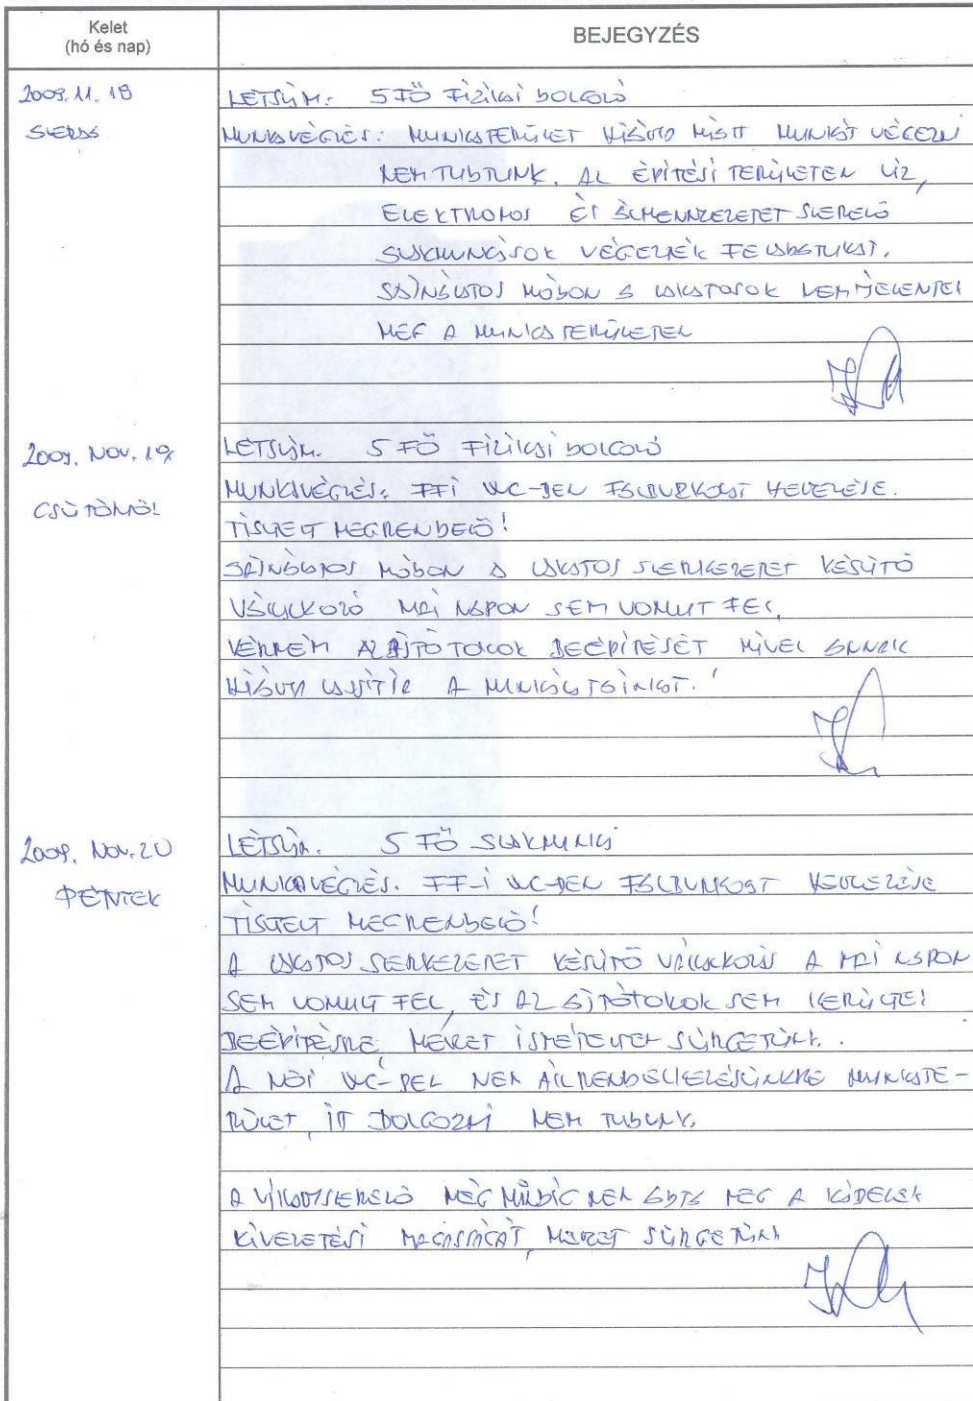 Kelet
(hó és nap)
BEJEGYZÉS
2009.11.18
SZERDA
LÉTSZÁM: 5 FŐ FIZIKAI DOLGOZÓ
MUNKAVÉGZÉS: MUNKATERÜLET HIÁNYA MIATT MUNKÁT VÉGEZNI
NEM TUDTUNK. AZ ÉPÍTÉSI TERÜLETEN VÍZ,
ELEKTROMOS ÉS ÁLMENNYEZETET SZERELŐ
SZAKMUNKÁSOK VÉGEZTÉK FELADATUKAT.
SAJNÁLATOS MÓDON A LAKATOSOK NEM JELENTEK
MEG A MUNKATERÜLETEN
2009. NOV. 19.
CSÜTÖRTÖK
LÉTSZÁM. 5 FŐ FIZIKAI DOLGOZÓ
MUNKAVÉGZÉS: FFI WC-BEN FALBURKOLAT HELYEZÉSE.
TISZTELT MEGRENDELŐ!
SAJNÁLATOS MÓDON A LAKATOS SZERKEZETET KÉSZÍTŐ
VÁLLALKOZÓ MAI NAPON SEM VONULT FEL,
KÉRNÉM AZ AJTÓTOKOK BEÉPÍTÉSÉT MIVEL ENNEK
HIÁNYA LASSÍTJA A MUNKÁLATAINKAT.
2009. NOV. 20
PÉNTEK
LÉTSZÁM. 5 FŐ SZAKMUNKÁS
MUNKAVÉGZÉS. FF-I WC-BEN FALBURKOLAT HELYEZÉSE
TISZTELT MEGRENDELŐ!
A LAKATOS SZERKEZETET KÉSZÍTŐ VÁLLALKOZÁS A MAI NAPON
SEM VONULT FEL, ÉS AZ AJTÓTOKOK SEM KERÜLTEK
BEÉPÍTÉSRE, MELYET ISMÉTELTEN SÜRGETÜNK.
A NŐI WC-BEN NEM ÁLL RENDELKEZÉSÜNKRE MUNKATE-
RÜLET, ITT DOLGOZNI NEM TUDUNK.
A VÍZSZERELŐ MÉG MINDIG NEM ADTA MEG A KÁDELEK
KIVEZETÉSI MAGASSÁGÁT, MELYET SÜRGETÜNK